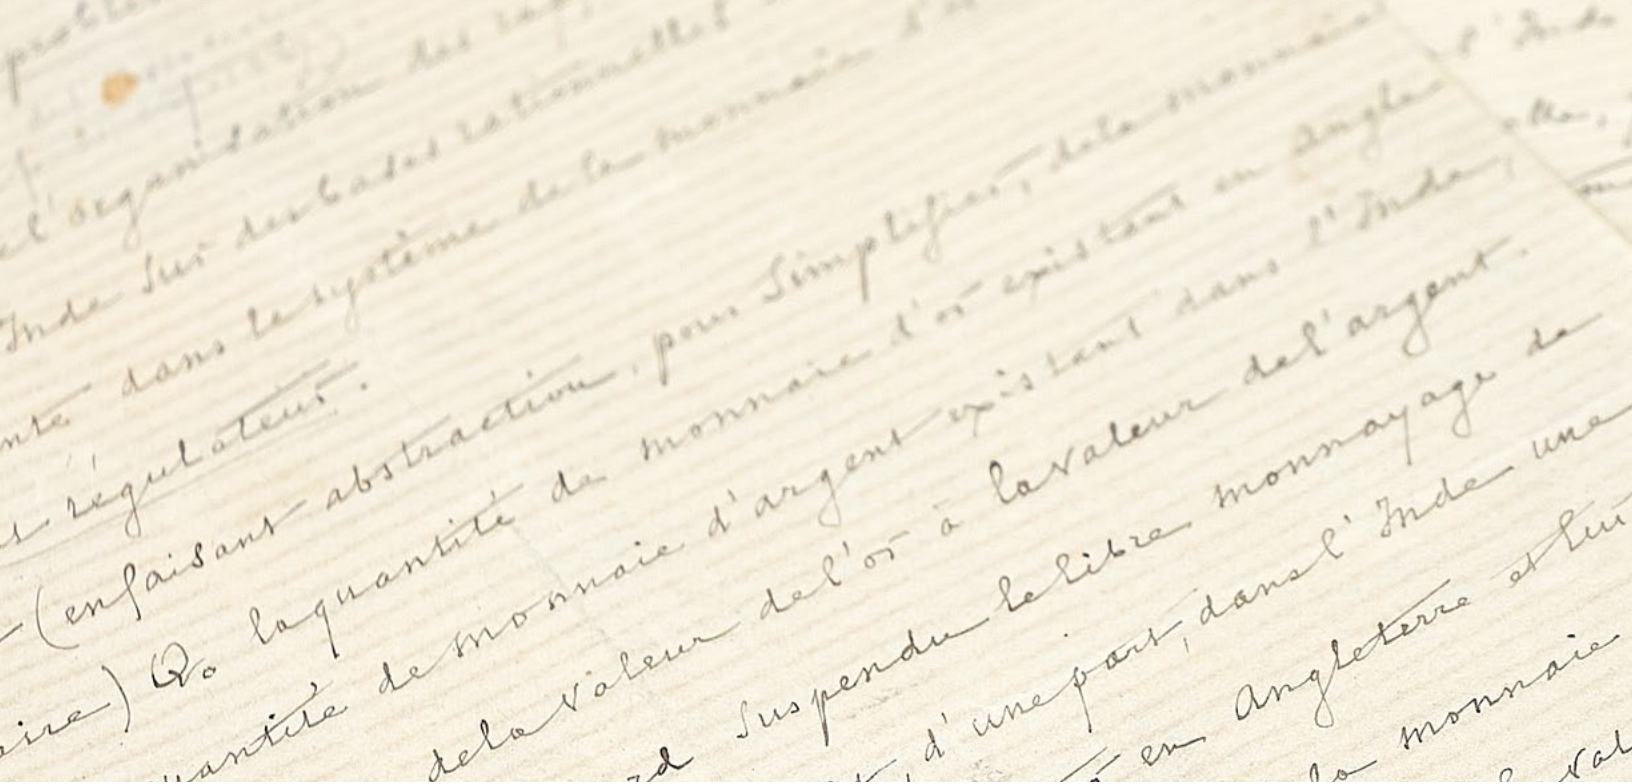 l'organisation des
Inde sur des bases rationnelles
dans le système de la monnaie d'
régulateur.
(en faisant abstraction, pour simplifier, de la monnaie
aire) Q₀ la quantité de monnaie d'or existant en Angle
quantité de monnaie d'argent existant dans l'Inde,
de la valeur de l'or à la valeur de l'argent.
suspendu le libre monnayage de
d'une part, dans l'Inde une
en Angleterre et lui
la monnaie
val
l'Inde
elle,